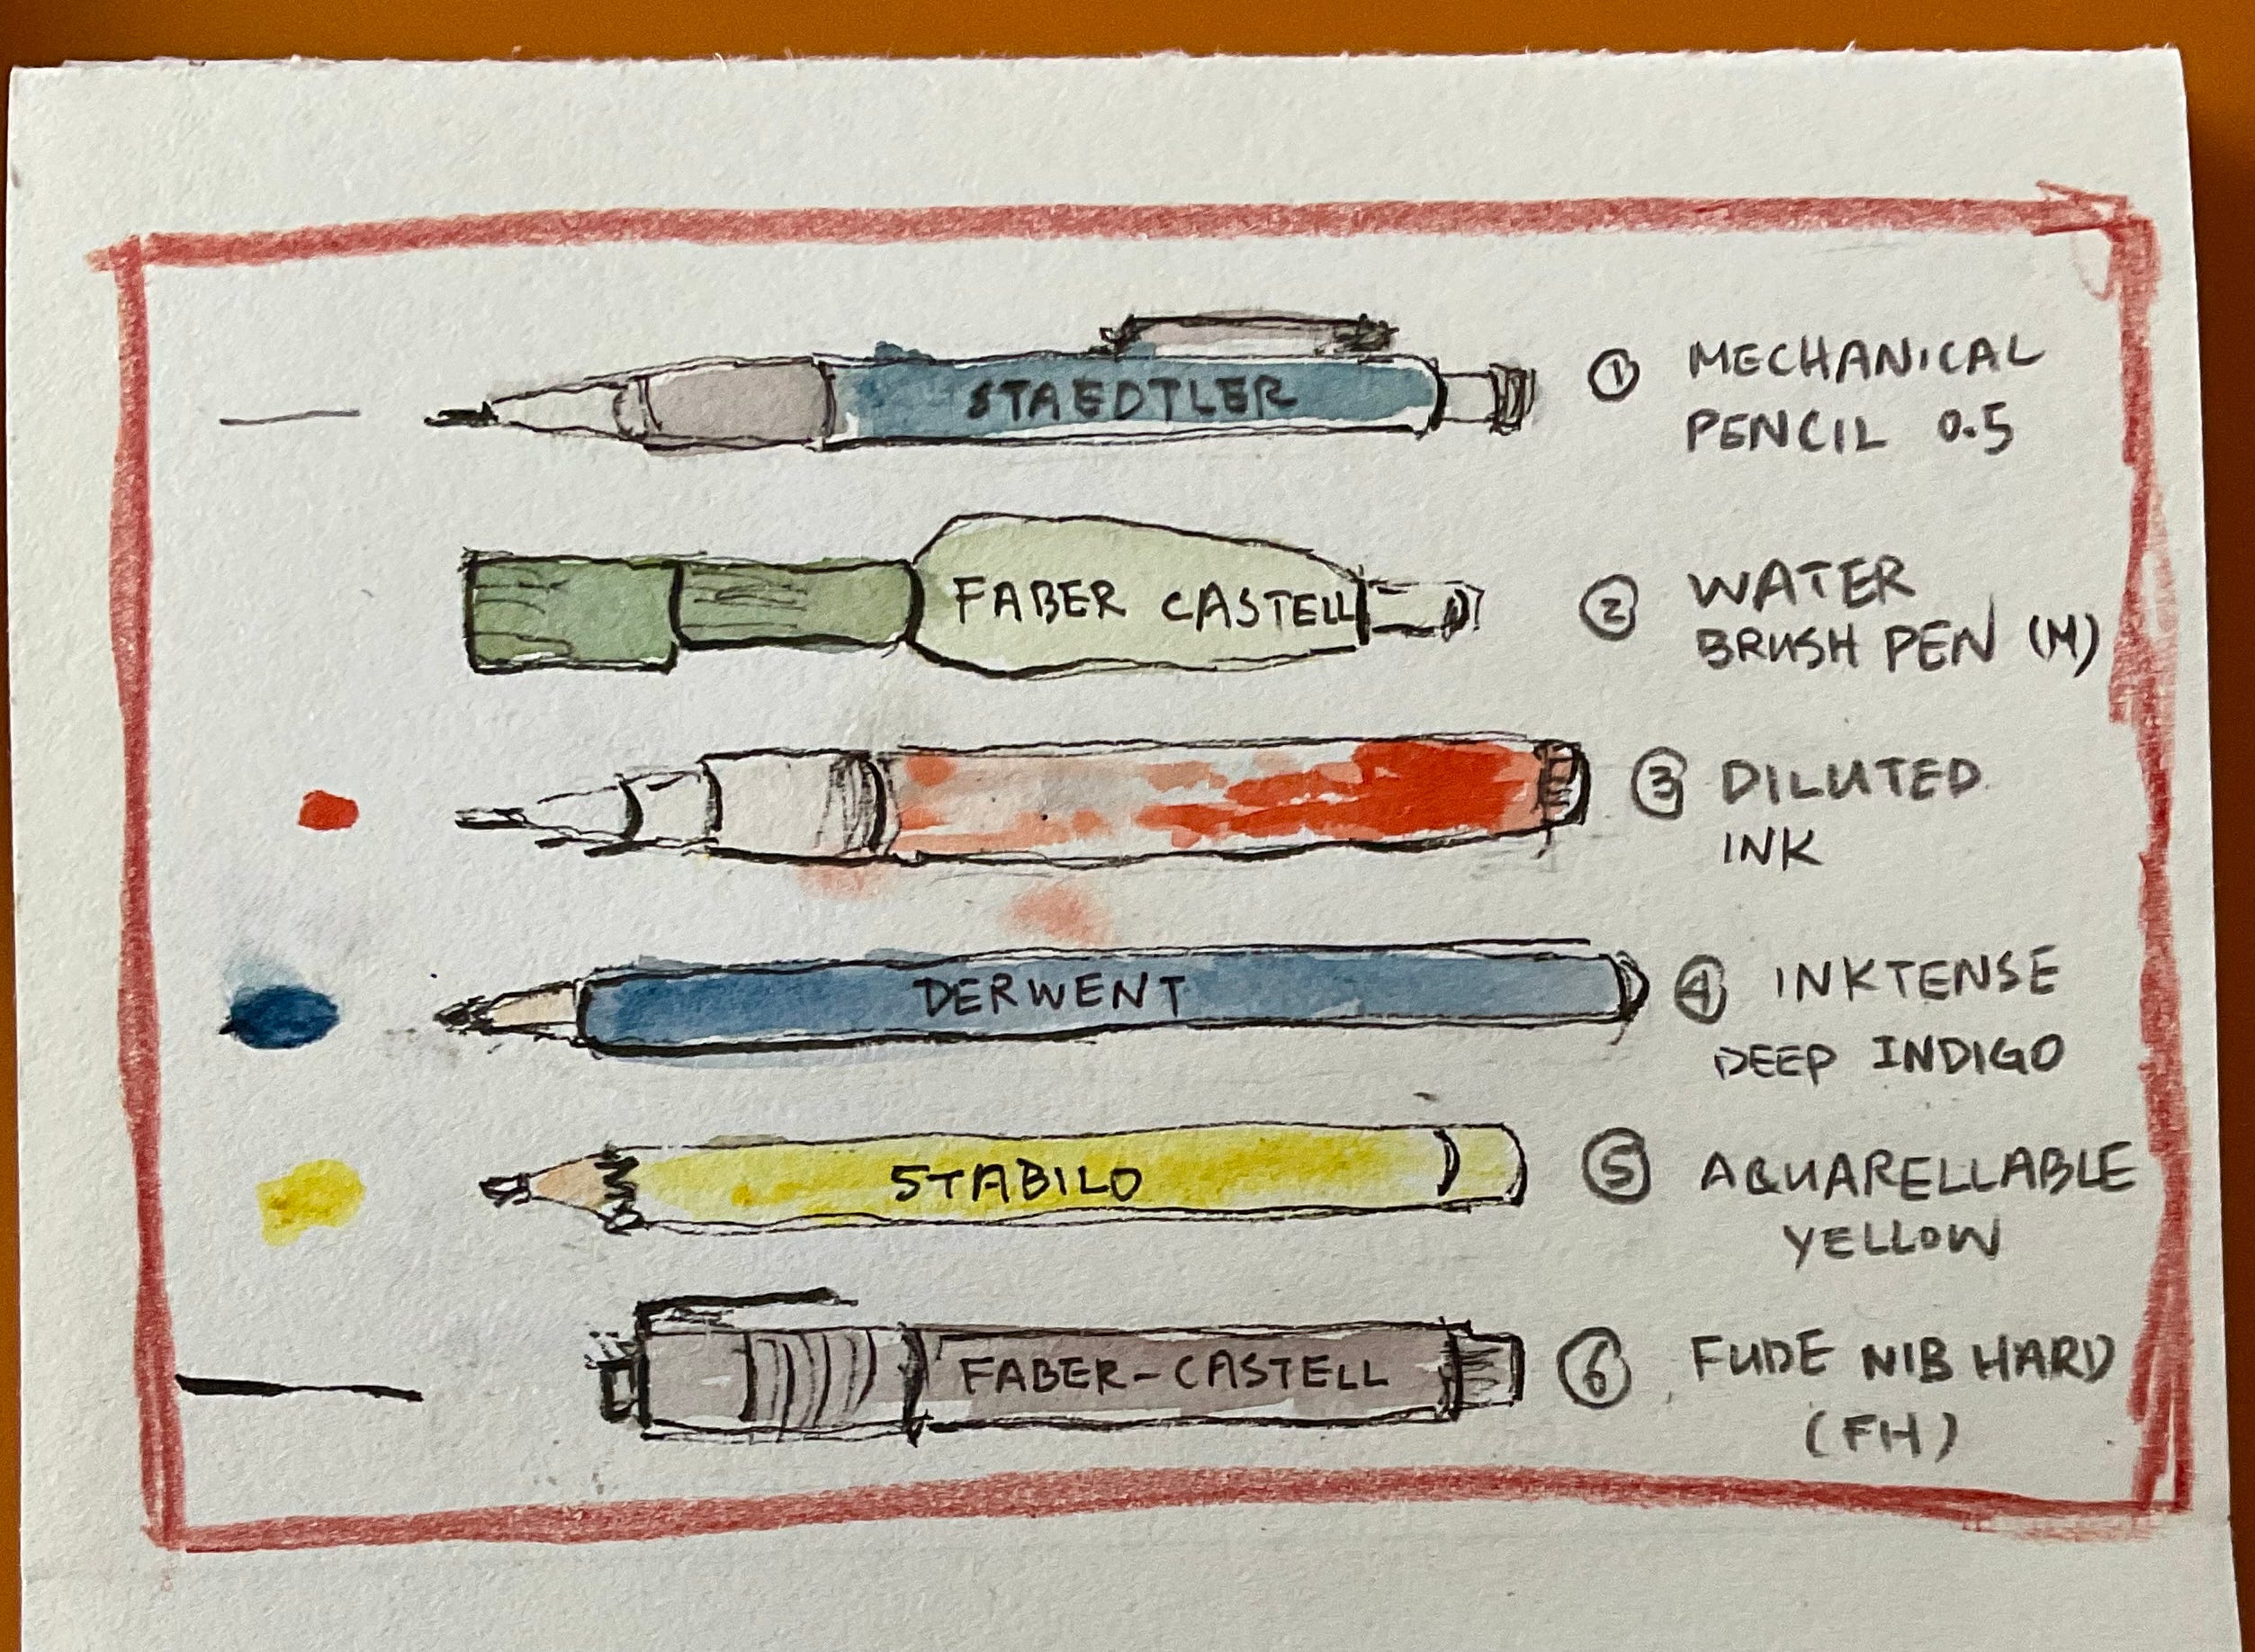 STAEDTLER
① MECHANICAL
PENCIL 0.5
FABER CASTELL
② WATER
BRUSH PEN (M)
③ DILUTED
INK
DERWENT
④ INKTENSE
DEEP INDIGO
STABILO
⑤ AQUARELLABLE
YELLOW
FABER-CASTELL
⑥ FUDE NIB HARD
(FH)